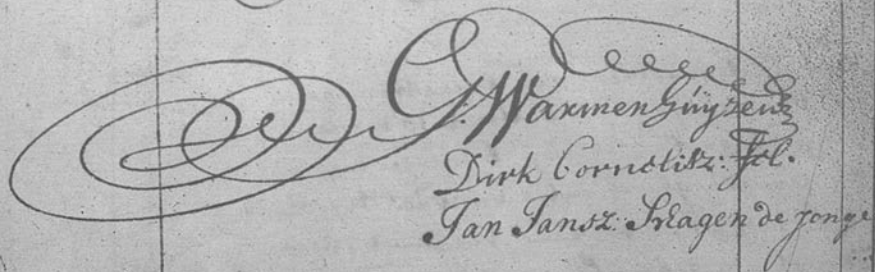 G. Warmenhuÿsen
Dirk Cornelisz: Jol.
Jan Jansz: Schagen de jonge